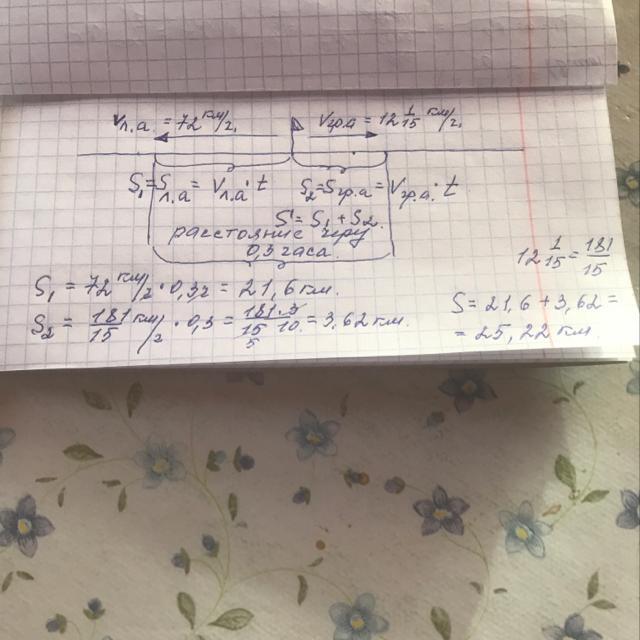 Vл.а. = 72 км/ч. Vгр.а = 12 1/15 км/ч.
S₁ = Sл.а = Vл.а · t S₂ = Sгр.а = Vгр.а · t
S = S₁ + S₂.
расстояние через
0,3 часа.
12 1/15 = 181/15
S₁ = 72 км/ч · 0,3ч = 21,6 км.
S₂ = 181/15 км/ч · 0,3 = 181·3/15·10 = 3,62 км.
5
S = 21,6 + 3,62 =
= 25,22 км